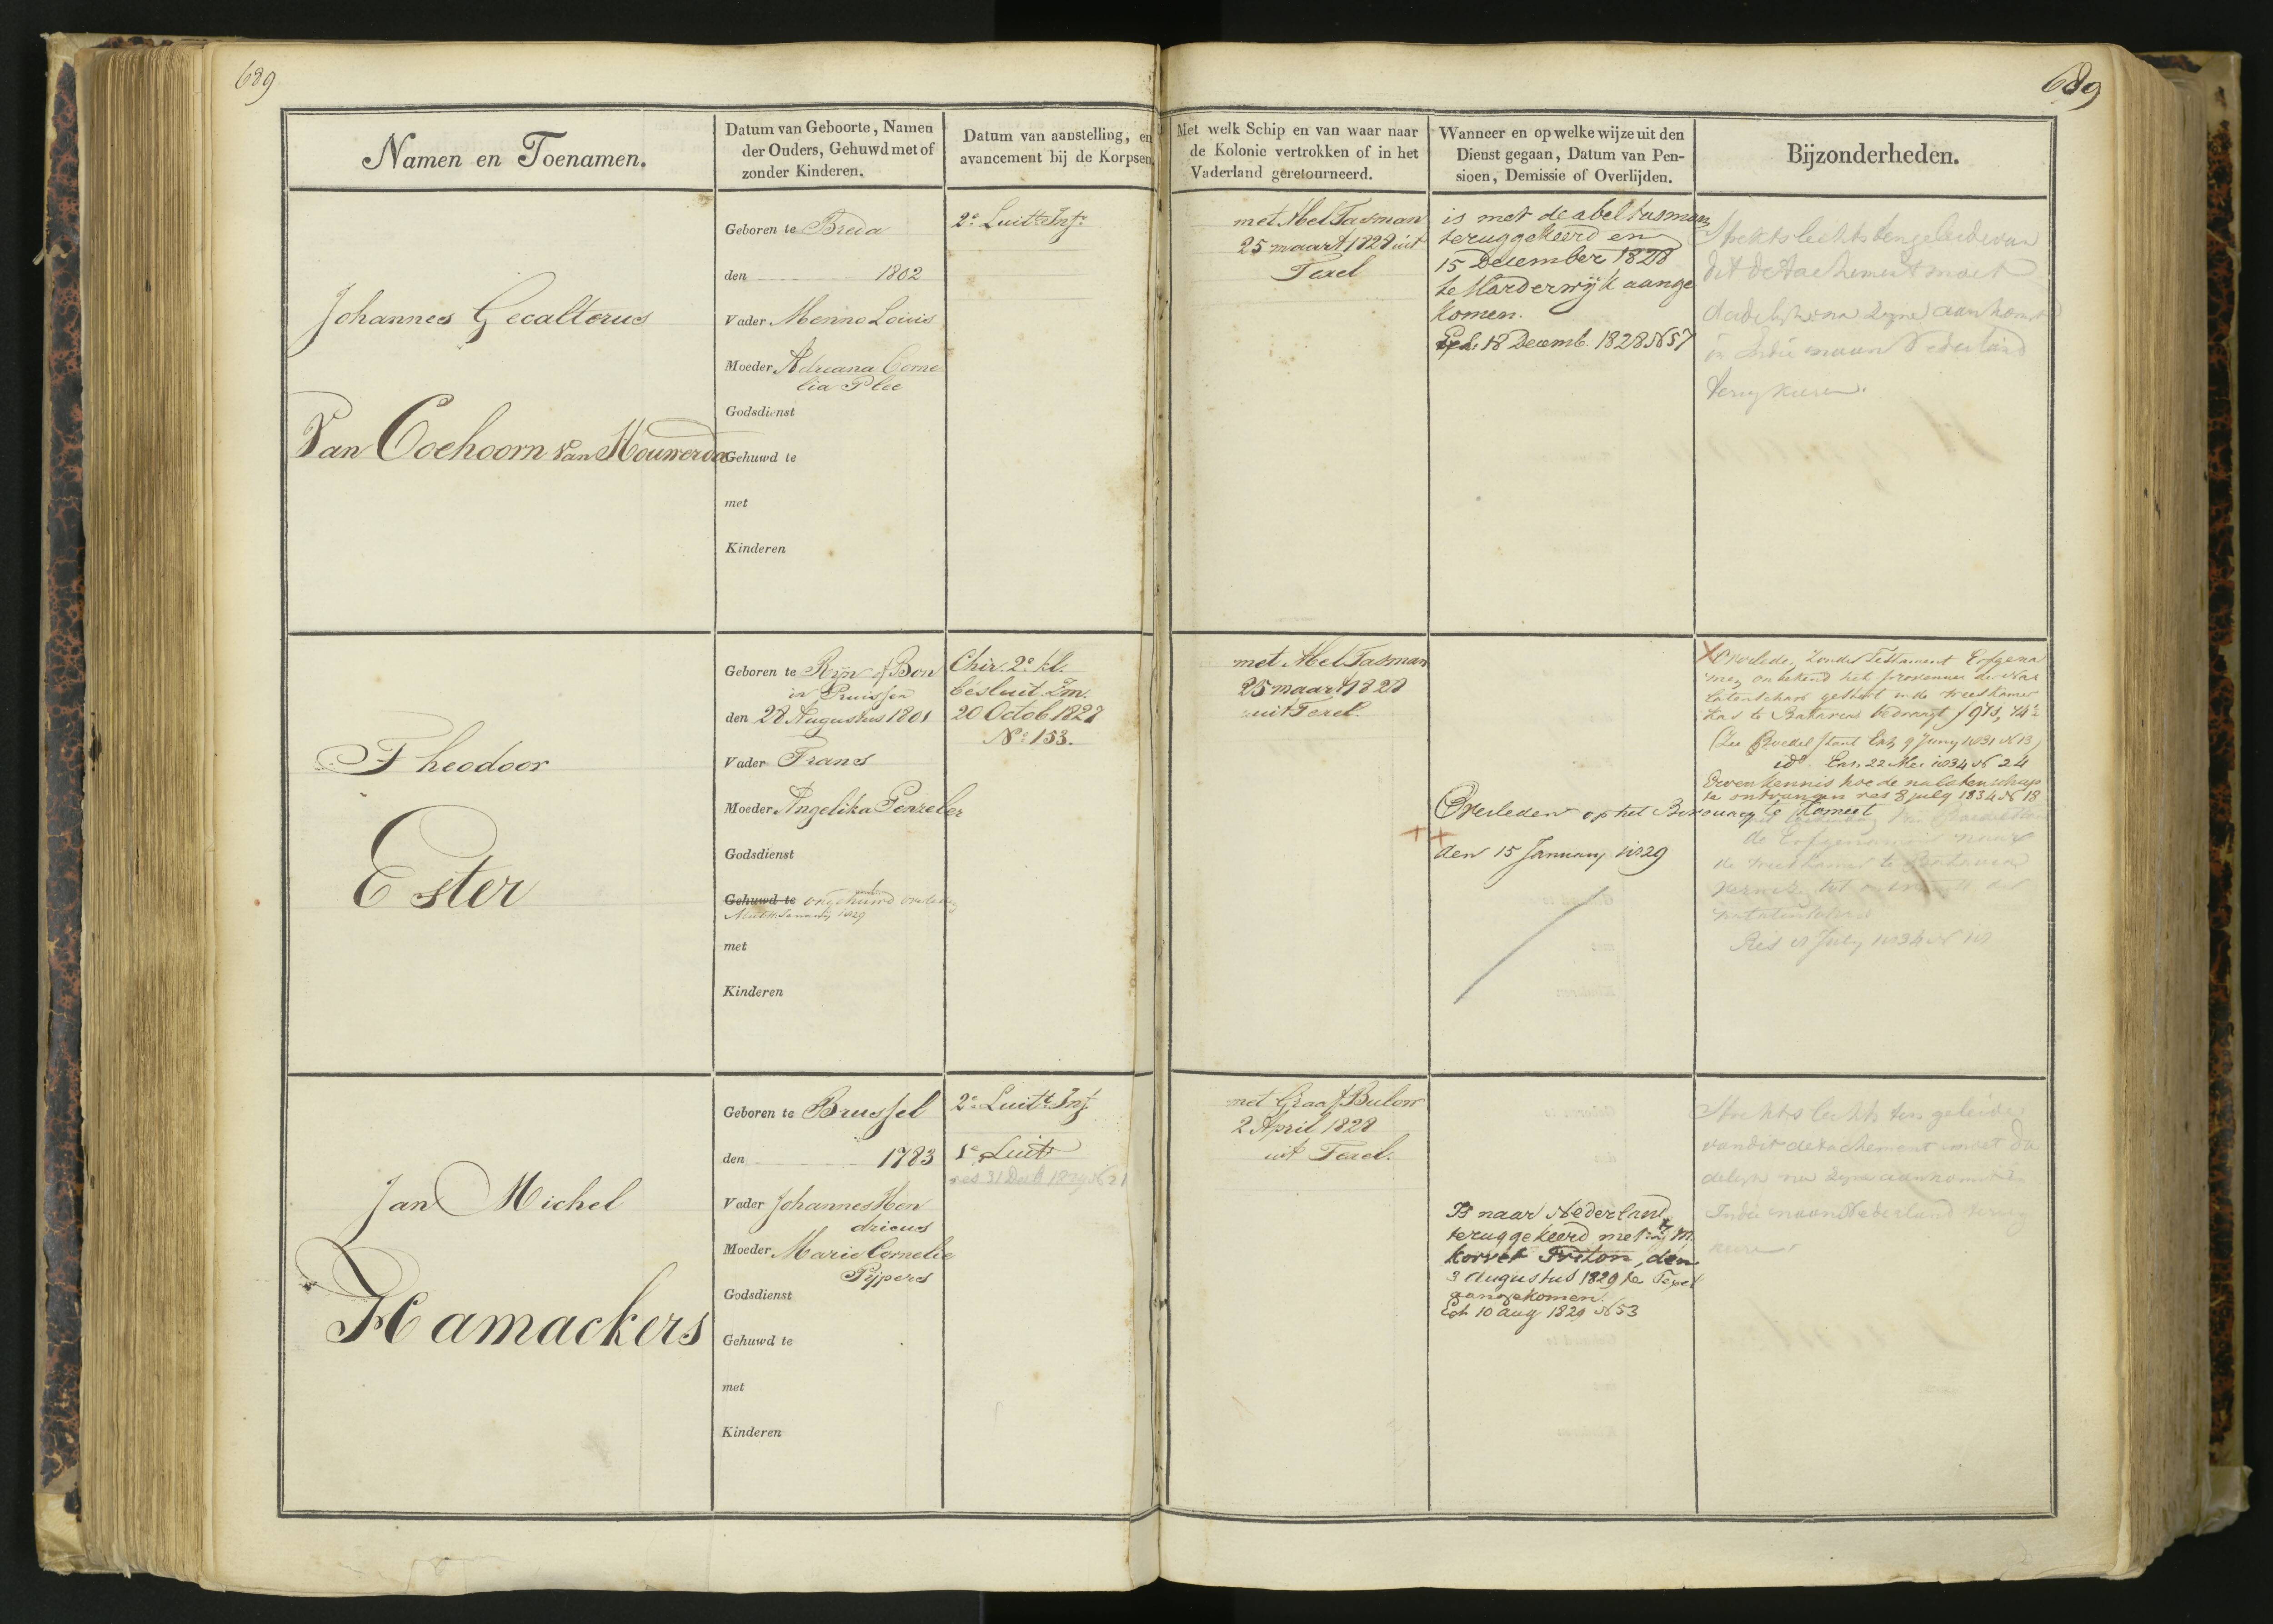 689
689
Namen en Toenamen.
Datum van Geboorte, Namen
der Ouders, Gehuwd met of
zonder Kinderen.
Datum van aanstelling, en
avancement bij de Korpsen
Met welk Schip en van waar naar
de Kolonie vertrokken of in het
Vaderland geretourneerd.
Wanneer en op welke wijze uit den
Dienst gegaan, Datum van Pen-
sioen, Demissie of Overlijden.
Bijzonderheden.
Johannes Gecalterus
Van Coehoorn van Houwerda
Geboren te Breda
den 1802
Vader Menno Louis
Moeder Adriana Corne
lia Plee
Godsdienst
Gehuwd te
met
Kinderen
2e Luitt Inf:
met Abel Tasman
25 maart 1828 uit
Texel
is met de abel tasman
teruggekeerd en
15 December 1828
te Harderwijk aange
komen.
18 Decemb. 1828 N 57
Strekt slechts ten geleide van
dit detachement moet
dadelijk na zijne aankomst
in Indie naar Nederland
terug keeren.
Theodoor
Ester
Geboren te Rijn of Bon
in Pruissen
den 28 Augustus 1801
Vader Frans
Moeder Angelika Penzeler
Godsdienst
Gehuwd te ongehuwd
January 1829
met
Kinderen
Chir. 2e kl.
besluit Im.
20 Octob 1827
No 153.
met Abel Tasman
25 maart 1828
uit Texel.
Overleden op het te
den 15 January 1829
Overleden, zonder Testament Erfgena
men onbekend het provenue der Na
latenschap gestort in de weeskamer
kas te Batavia bedraagt f 973, 74
(Zie Boedel staat Exh 9 Juny 1831 N 13)
ide Exh. 22 Mei 1834 N 24
kennis hoe de nalatenschap
te ontvangen res 8 july 1834 N 18
de Erfgenamen naar
de weeskamer te Batavia
Res 8 July 1834 N 18
Jan Michel
Hamackers
Geboren te Brussel
den 1783
Vader Johannes Hen
dricus
Moeder Marie Cornelie
Pijpers
Godsdienst
Gehuwd te
met
Kinderen
2e Luitt Inf
1e Luitt
res 31 Dec 1829 N 21
met Graaf Bulow
2 April 1828
uit Texel.
Is naar Nederland
teruggekeerd met Z M.
korvet Triton, den
3 Augustus 1829 te Texel
aangekomen.
Exh 10 Aug 1829 N 53
Strekt slechts ten geleide
van dit detachement moet da
delijk na zijne aankomst in
Indie naar Nederland terug
keeren